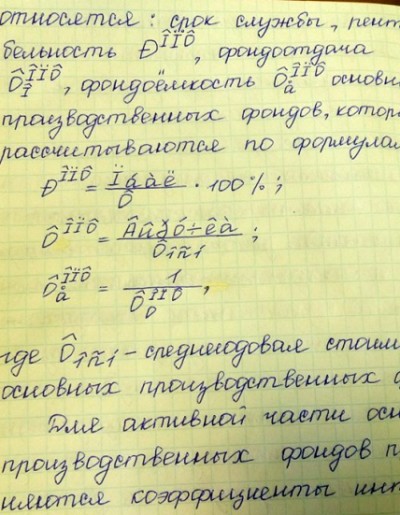 относятся: срок службы, рент
бельность Ð^ÎÏÔ, фондоотдача
Ô_Î^ÎÏÔ, фондоёмкость Ô_å^ÎÏÔ основн
производственных фондов, котор
рассчитываются по формулам
Ð^ÎÏÔ = Ïáàë / Ô · 100%;
Ô^ÎÏÔ = Âûðó÷êà / Ôîñí;
Ô_å^ÎÏÔ = 1 / Ô_D^ÎÏÔ,
где Ôîñí - среднегодовая стоим
основных производственных ф
Для активной части осн
производственных фондов п
няются коэффициенты инт